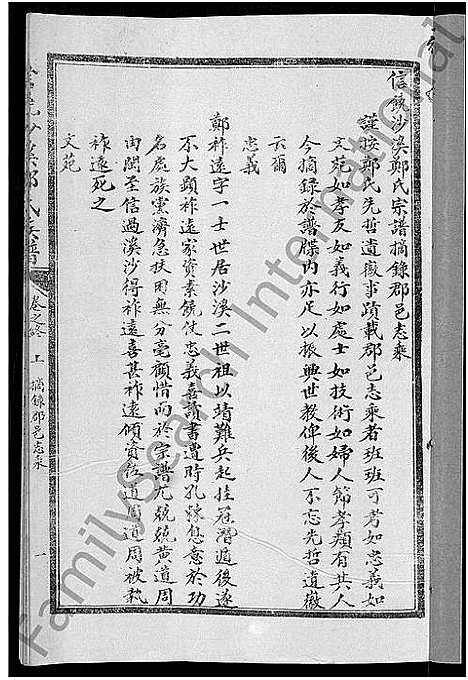 信饒沙溪鄭氏宗譜摘錄郡邑志乘
謹按鄭氏先哲遺徽事蹟載郡邑志乘者班班可考如忠義如
文苑如孝友如義行如處士如技術如婦人節孝類有其人
今摘錄於譜牒內亦足以振興世教俾後人不忘先哲遺徽
云爾
忠義
鄭祚遠字一士世居沙溪二世祖以靖難兵起挂冠潛遁後遂
不大顯祚遠家資素饒仗忠義喜讀書遭時孔棘息意於功
名處族黨濟急扶困無分毫顧惜而於宗譜尤兢兢黄道周
由閩至信過溪沙得祚遠喜甚祚遠傾資餉道周道周被執
祚遠死之
文苑
沙溪鄭氏族譜
卷之終 上 摘錄郡邑志乘 一
FamilySearch International